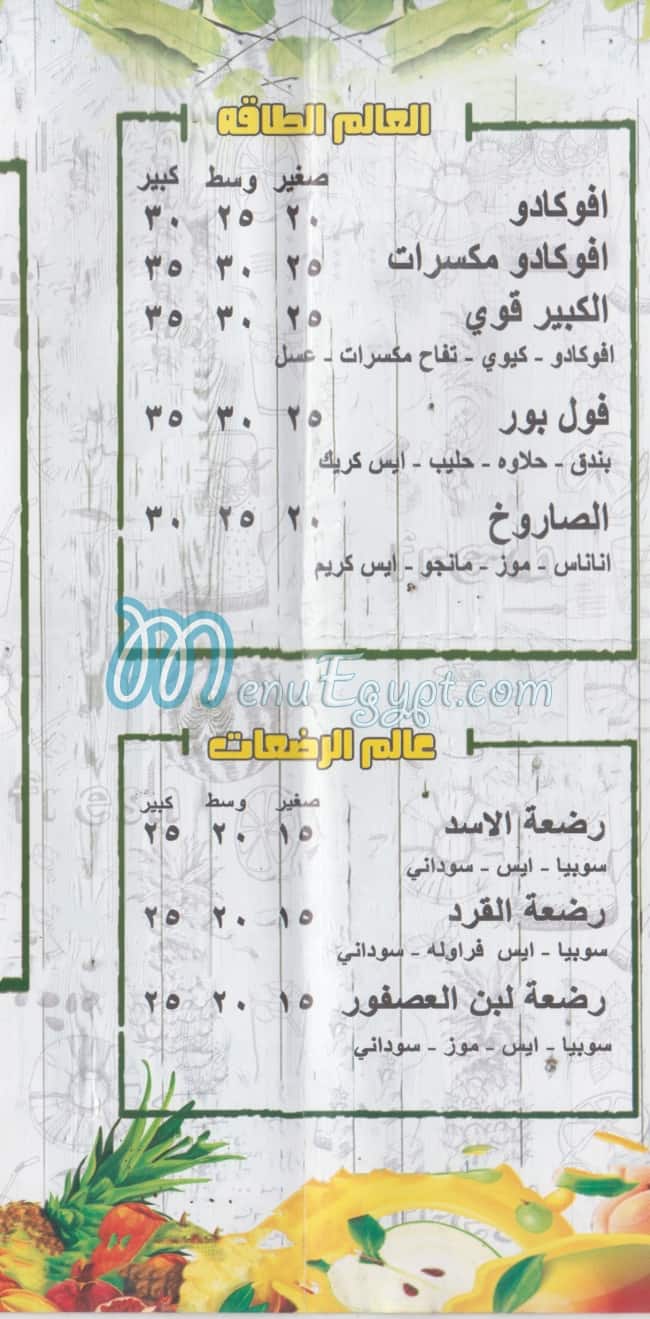 العالم الطاقه
صغير وسط كبير
افوكادو ٢٠ ٢٥ ٣٠
افوكادو مكسرات ٢٥ ٣٠ ٣٥
الكبير قوي ٢٥ ٣٠ ٣٥
افوكادو - كيوي - تفاح مكسرات - عسل
فول بور ٢٥ ٣٠ ٣٥
بندق - حلاوه - حليب - ايس كريك
الصاروخ ٢٠ ٢٥ ٣٠
اناناس - موز - مانجو - ايس كريم
fresh
MenuEgypt.com
عالم الرضعات
صغير وسط كبير
fresh
رضعة الاسد ١٥ ٢٠ ٢٥
سوبيا - ايس - سوداني
رضعة القرد ١٥ ٢٠ ٢٥
سوبيا - ايس فراوله - سوداني
رضعة لبن العصفور ١٥ ٢٠ ٢٥
سوبيا - ايس - موز - سوداني